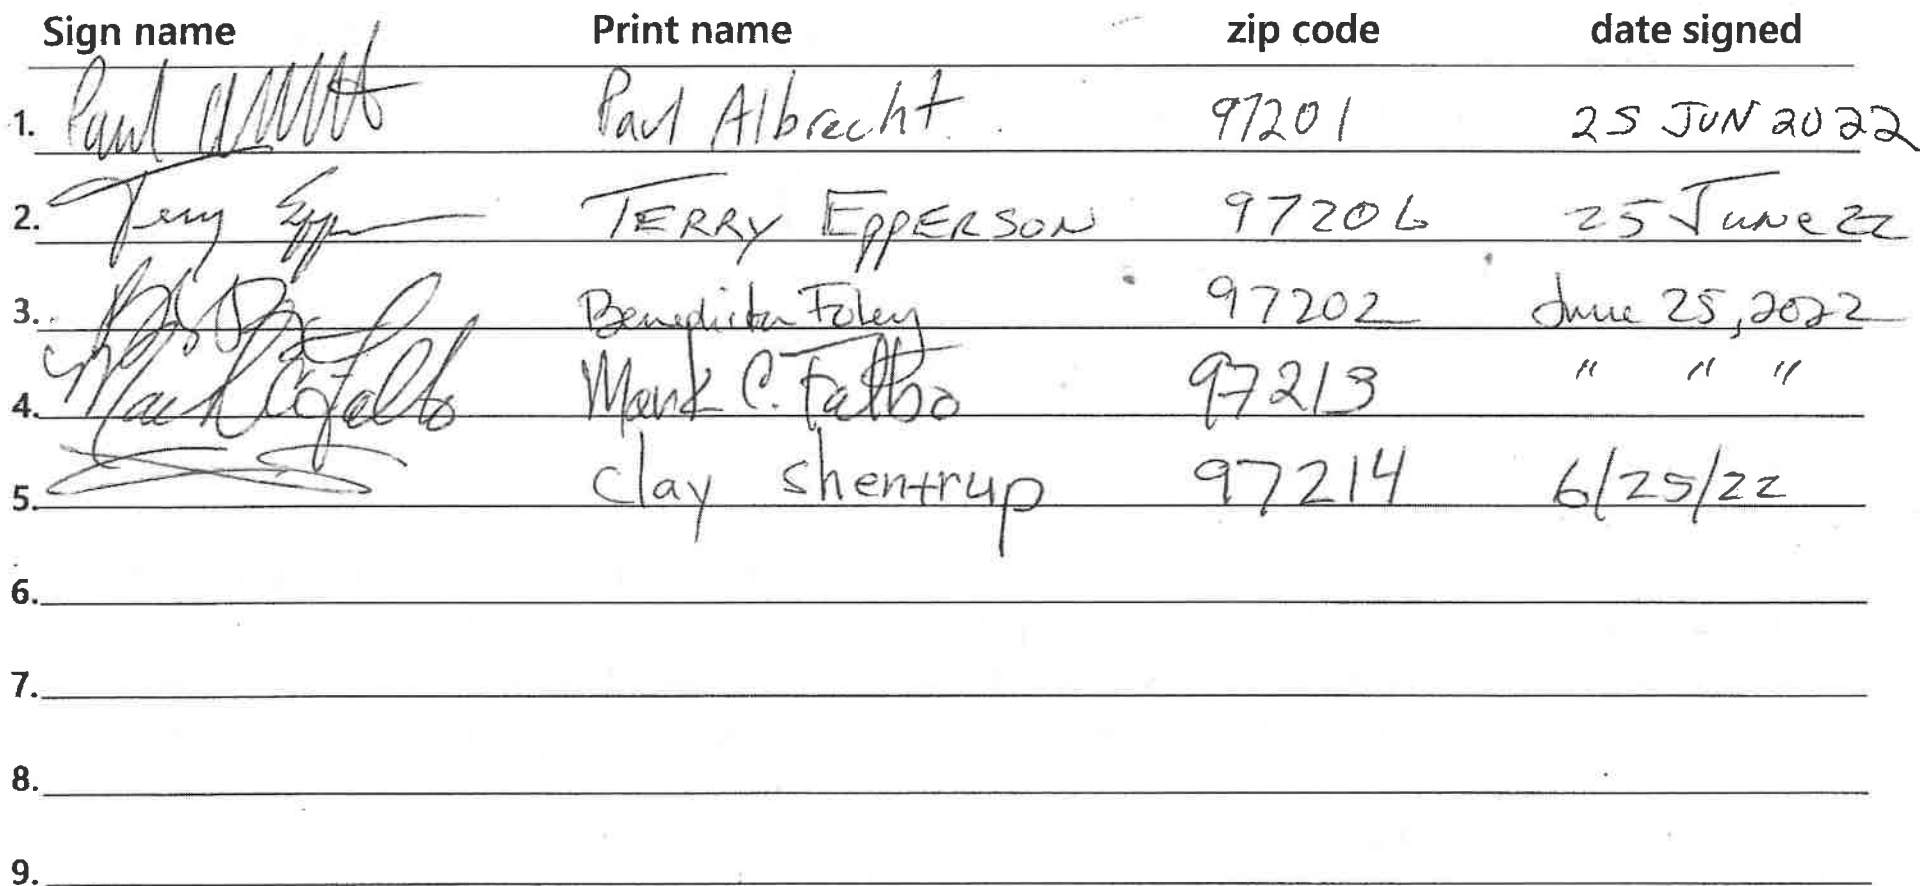 Sign name Print name zip code date signed
1. Paul Paul Albrecht 97201 25 JUN 2022
2. Terry Epp TERRY EPPERSON 97206 25 June 22
3. Benedicta Foley 97202 June 25, 2022
4. Mark C Falbo Mark C. Falbo 97213 " " "
5. Clay Shentrup 97214 6/25/22
6.
7.
8.
9.